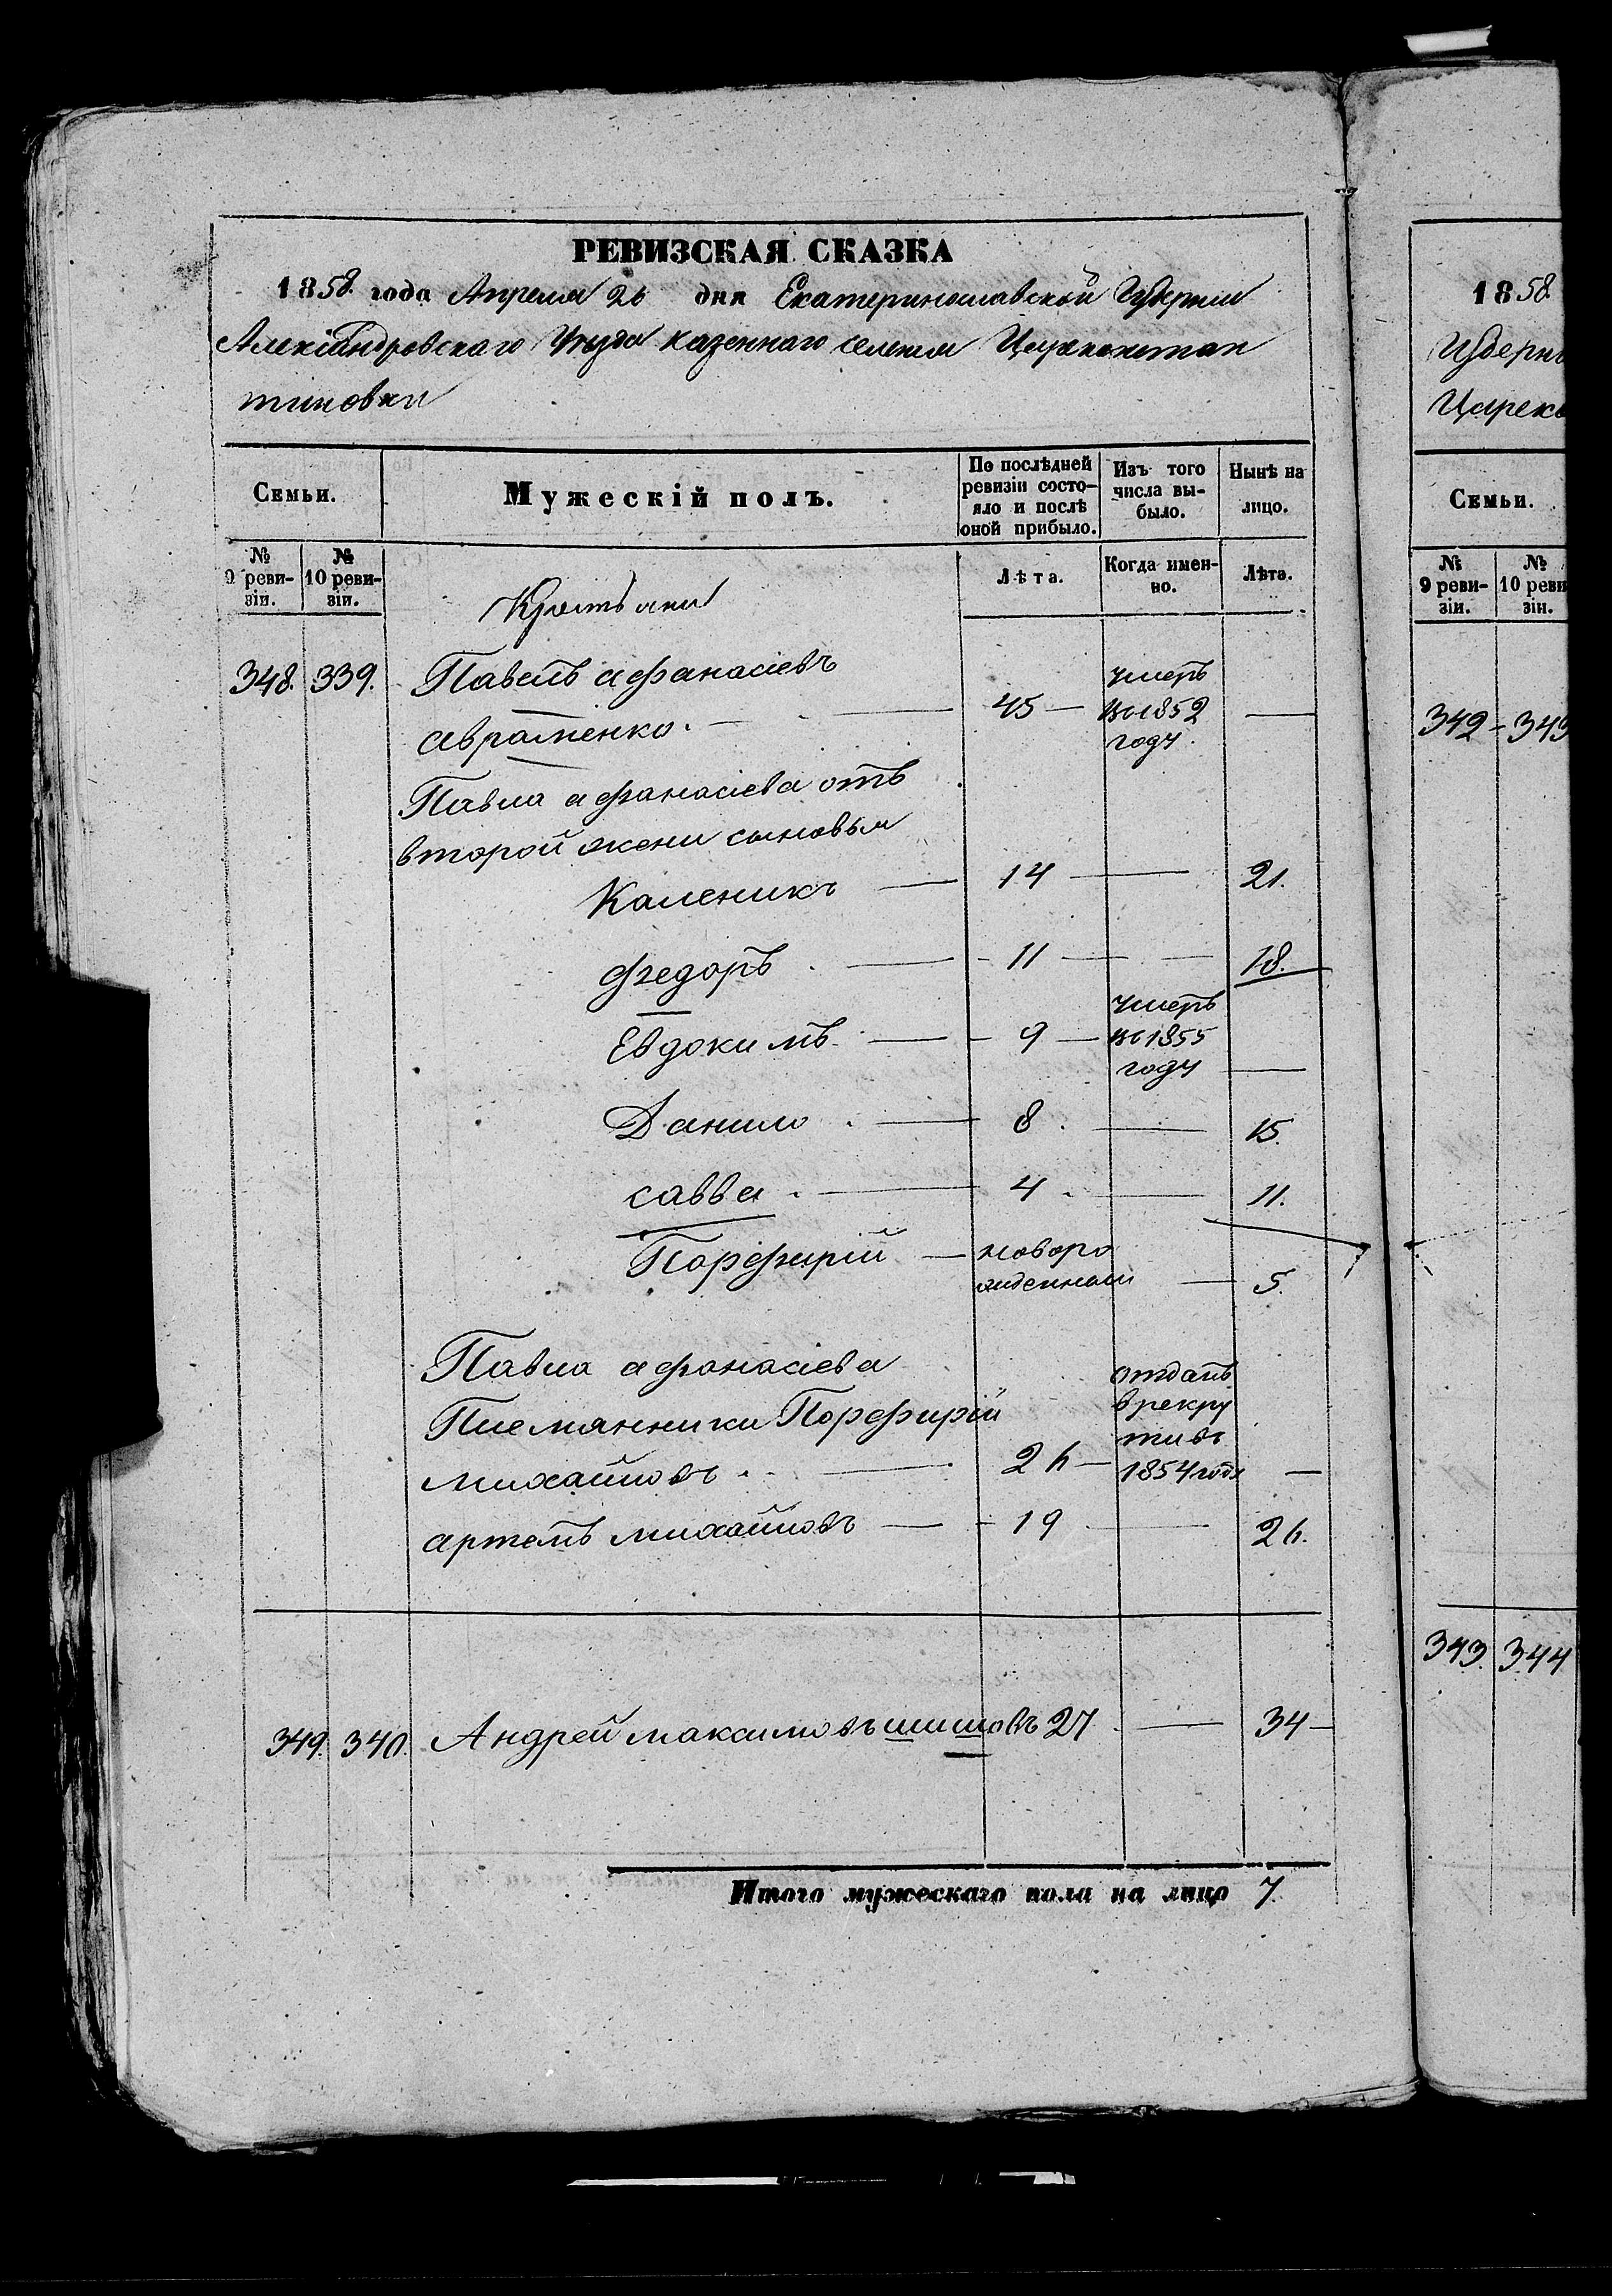 РЕВИЗСКАЯ СКАЗКА
1858 года Апреля 26 дня Екатеринославской Губернии
Александровскаго Уезда казеннаго селения Цареконстан
тиновки
Семьи.
Мужескій полъ.
По послѣдней ревизіи состо-
яло и послѣ
оной прибыло.
Изъ того
числа вы-
было.
Нынѣ на
лицо.
№ 9 реви-
зіи.
№ 10 реви-
зіи.
Лѣта.
Когда имен-
но.
Лѣта.
Крестьяни
348. 339. Павелъ афанасіевъ
авраменко. — 45 — умеръ
во 1852
году. —
Павла афанасіева отъ
второй жени сыновья
Каленикъ — 14 — 21.
федоръ — 11 — 18.
Евдокимъ — 9 — умеръ
во 1855
году —
Данило — 8 — 15.
савва — 4 — 11.
Порфирій — новоро
жденной — 5.
Павла афанасіева
Племянники Порфирій
михайловъ — 26 — отданъ
в рекру
ти въ
1854 году —
артемъ михайловъ — 19 — 26.
349. 340. Андрей максимовъ шишовъ 27 — 34 —
Итого мужескаго пола на лицо 7.
1858.
Губерн
Царек
Семьи.
№ 9 реви-
зіи.
№ 10 реви
зіи.
342 - 343
343. 344